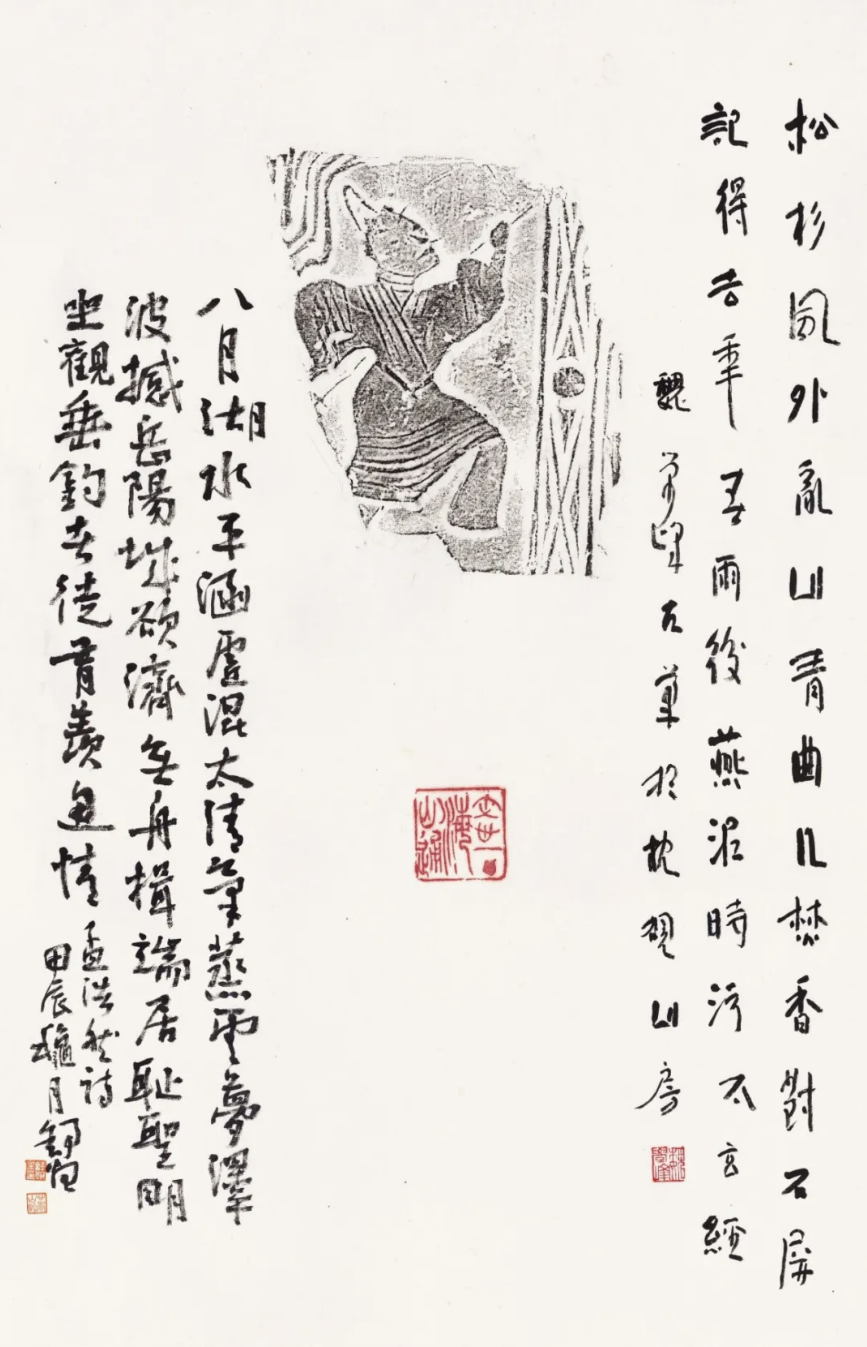 松杉風外亂山青曲几焚香對石屏
記得去年春雨後燕泥時污太玄經
魏學峰古草於枕硯山房
八月湖水平涵虛混太清氣蒸雲夢澤
波撼岳陽城欲濟無舟楫端居恥聖明
坐觀垂釣者徒有羨魚情孟浩然詩
甲辰龝月